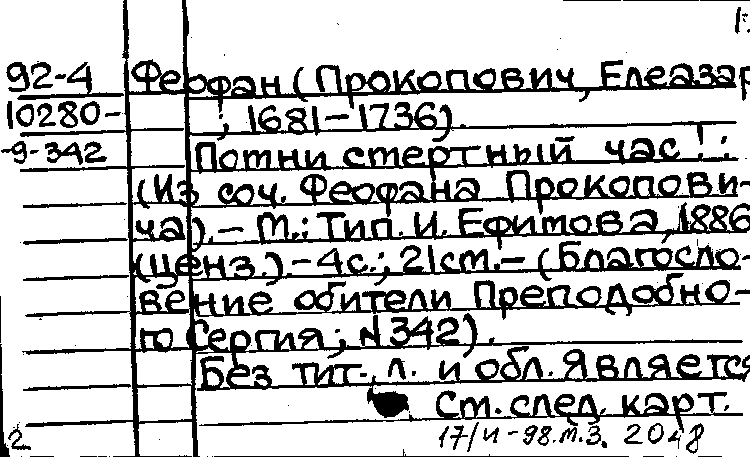 92-4 Феофан (Прокопович, Елеазар
10280- ; 1681-1736).
-9-342 Потни стертный час! :
(Из соч. Феофана Прокопови-
ча). - М.: Тип. И. Ефитова, 1886
(ценз.). - 4 с.; 21 см. - (Благосло-
вение обители Преподобно-
го Сергия; № 342).
Без тит. л. и обл. Является
См. след. карт.
2 17/ -98. т.З. 2048